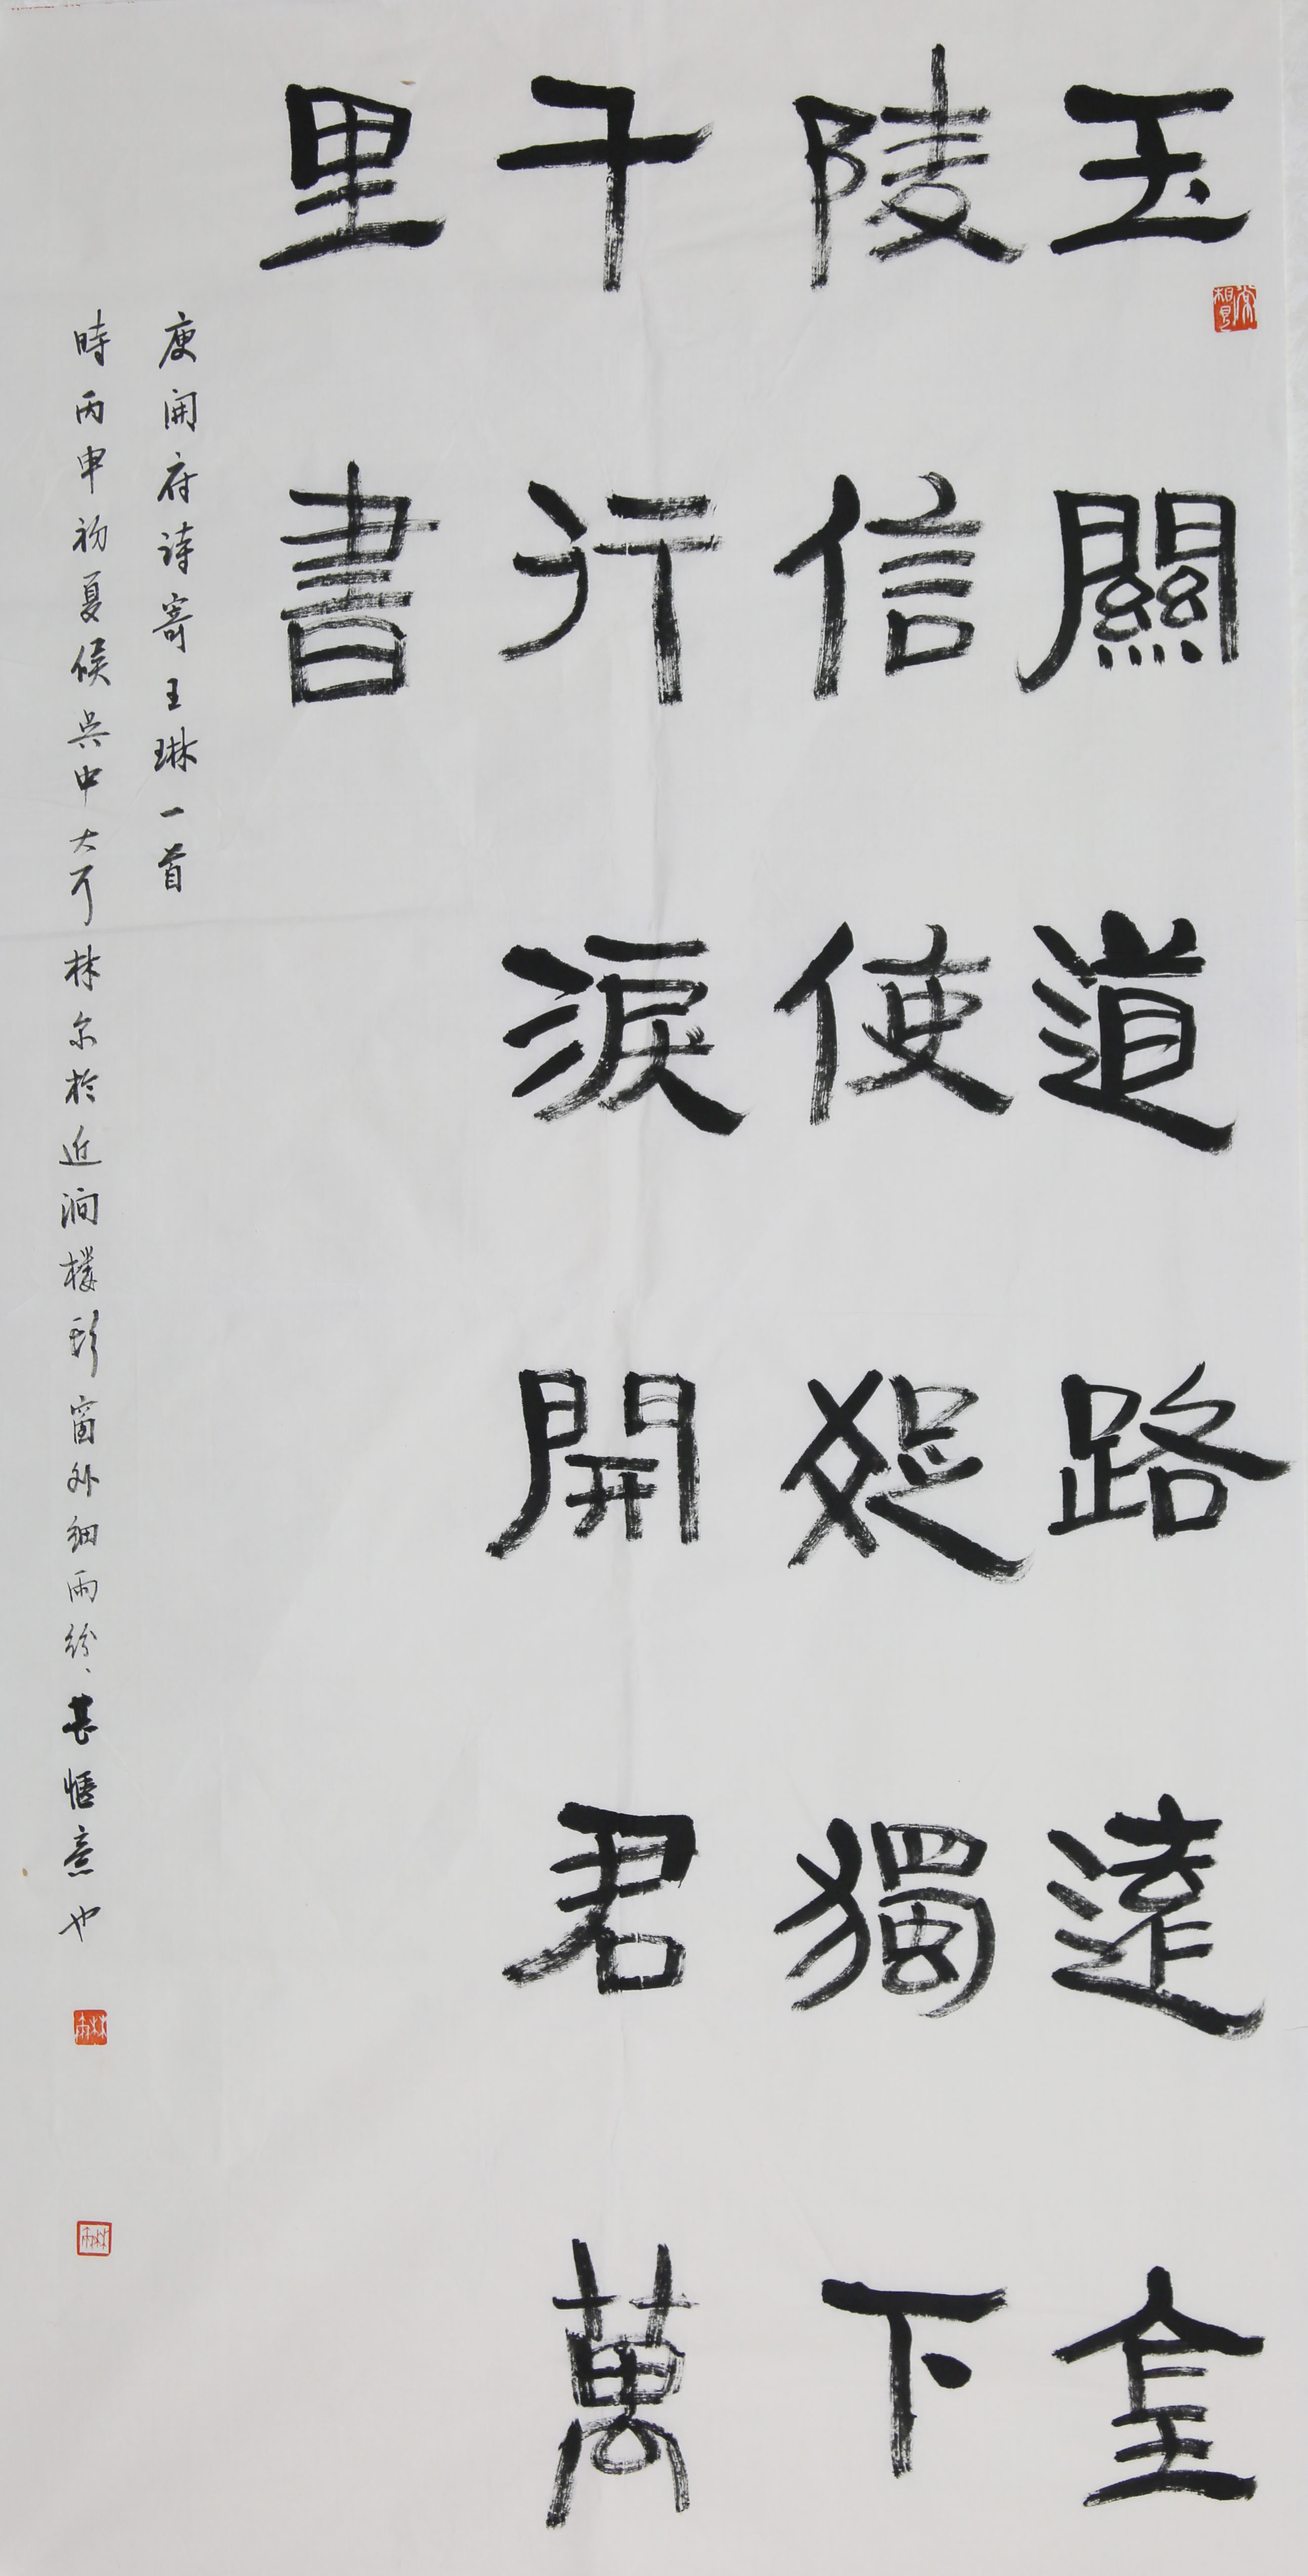 玉關道路遠金
陵信使疏獨下
千行淚開君萬
里書
庾開府詩寄王琳一首
時丙申初夏候吳中大可林尔於近澗樓窗外細雨紛、甚愜意也